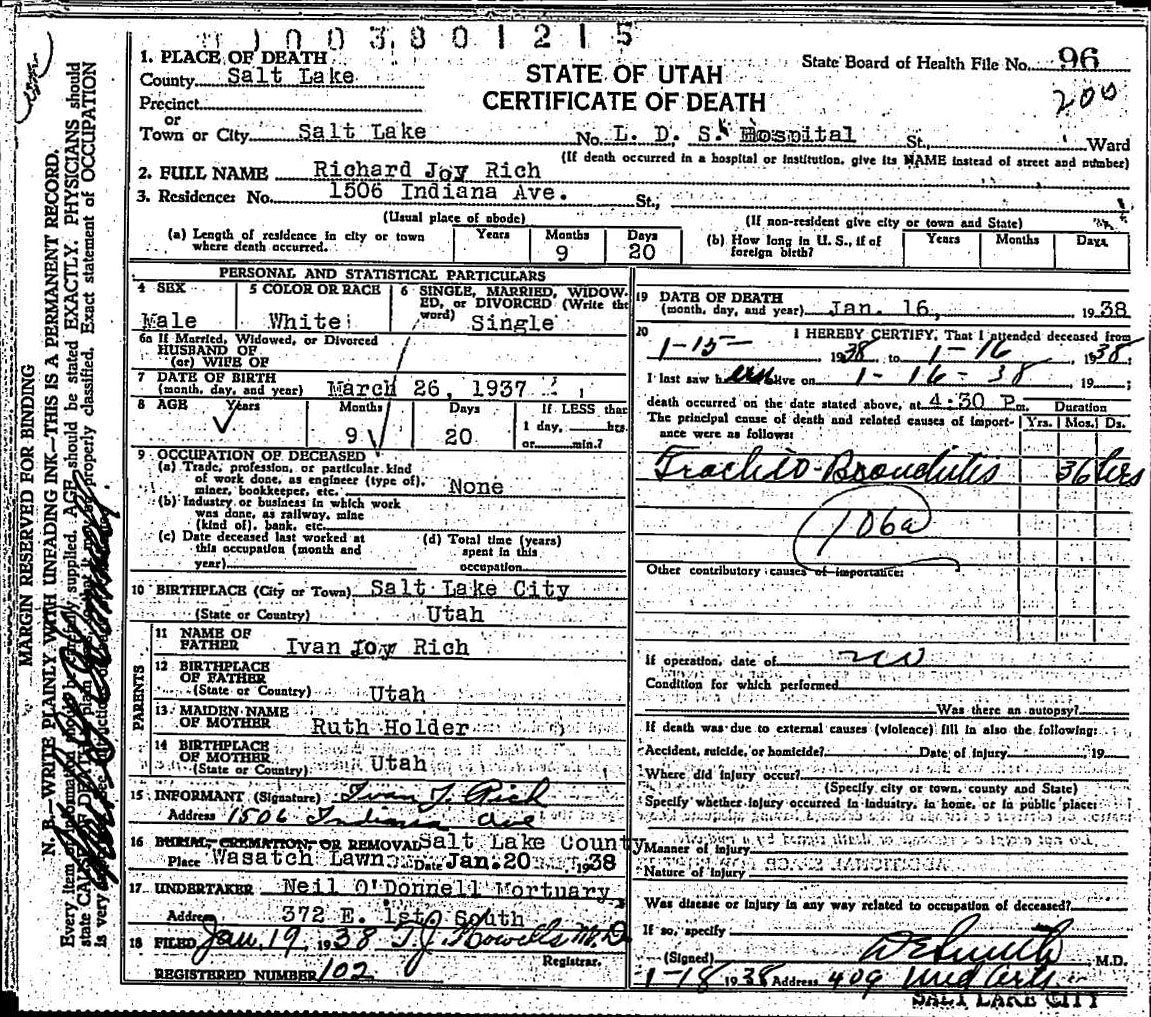 003801215
1. PLACE OF DEATH
County Salt Lake
Precinct
or
Town or City Salt Lake No. L. D. S. Hospital St., Ward
(If death occurred in a hospital or institution, give its NAME instead of street and number)
STATE OF UTAH
CERTIFICATE OF DEATH
State Board of Health File No. 96
200
2. FULL NAME Richard Joy Rich
3. Residence: No. 1506 Indiana Ave. St.,
(Usual place of abode) (If non-resident give city or town and State)
(a) Length of residence in city or town where death occurred. Years Months 9 Days 20
(b) How long in U. S., if of foreign birth? Years Months Days
PERSONAL AND STATISTICAL PARTICULARS
4 SEX Male
5 COLOR OR RACE White
6 SINGLE, MARRIED, WIDOWED, or DIVORCED (Write the word) Single
6a If Married, Widowed, or Divorced
HUSBAND OF
(or) WIFE OF
7 DATE OF BIRTH
(month, day, and year) March 26, 1937
8 AGE Years Months 9 Days 20 If LESS than 1 day, hrs. or min.?
9 OCCUPATION OF DECEASED
(a) Trade, profession, or particular kind
of work done, as engineer (type of),
miner, bookkeeper, etc. None
(b) Industry or business in which work
was done, as railway, mine
(kind of), bank, etc.
(c) Date deceased last worked at
this occupation (month and
year)
(d) Total time (years)
spent in this
occupation
10 BIRTHPLACE (City or Town) Salt Lake City
(State or Country) Utah
PARENTS
11 NAME OF
FATHER Ivan Joy Rich
12 BIRTHPLACE
OF FATHER
(State or Country) Utah
13 MAIDEN NAME
OF MOTHER Ruth Holder
14 BIRTHPLACE
OF MOTHER
(State or Country) Utah
15 INFORMANT (Signature) Ivan J. Rich
Address 1506 Indiana Ave
16 BURIAL, CREMATION, OR REMOVAL Salt Lake County
Place Wasatch Lawn Date Jan. 20 1938
17 UNDERTAKER Neil O'Donnell Mortuary
Address 372 E. 1st South
18 FILED Jan. 19 1938 T J Howells M.D.
Registrar.
REGISTERED NUMBER 102
19 DATE OF DEATH
(month, day, and year) Jan. 16, 1938
20 I HEREBY CERTIFY, That I attended deceased from
1-15- 1938 to 1-16 1938;
I last saw h alive on 1-16-38 19 ;
death occurred on the date stated above, at 4:30 P.m. Duration
The principal cause of death and related causes of importance were as follows: Yrs. Mos. Ds.
Tracheo-Bronchitis 36 hrs
106a
Other contributory causes of importance:
If operation, date of no
Condition for which performed
Was there an autopsy?
If death was due to external causes (violence) fill in also the following:
Accident, suicide, or homicide? Date of injury 19
Where did injury occur?
(Specify city or town, county and State)
Specify whether injury occurred in industry, in home, or in public place:
Manner of injury
Nature of injury
Was disease or injury in any way related to occupation of deceased?
If so, specify
(Signed) D E Smith M.D.
1-18 1938 Address 409 Med Arts
SALT LAKE CITY
MARGIN RESERVED FOR BINDING
N. B.—WRITE PLAINLY WITH UNFADING INK—THIS IS A PERMANENT RECORD.
Every item of information should be carefully supplied. AGE should be stated EXACTLY. PHYSICIANS should
state CAUSE OF DEATH in plain properly classified. Exact statement of OCCUPATION
is very